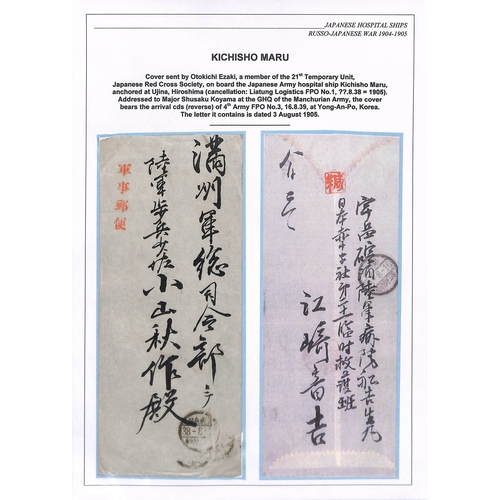 JAPANESE HOSPITAL SHIPS
RUSSO-JAPANESE WAR 1904-1905
KICHISHO MARU
Cover sent by Otokichi Ezaki, a member of the 21st Temporary Unit,
Japanese Red Cross Society, on board the Japanese Army hospital ship Kichisho Maru,
anchored at Ujina, Hiroshima (cancellation: Liatung Logistics FPO No.1, ??.8.38 = 1905).
Addressed to Major Shusaku Koyama at the GHQ of the Manchurian Army, the cover
bears the arrival cds (reverse) of 4th Army FPO No.3, 16.8.39, at Yong-An-Po, Korea.
The letter it contains is dated 3 August 1905.
滿州軍總司令部ニテ
陸軍歩兵少佐小山秋作殿
軍事郵便
宇品碇泊陸軍病院船吉生丸
日本赤十字社臨時救護班
江崎音吉